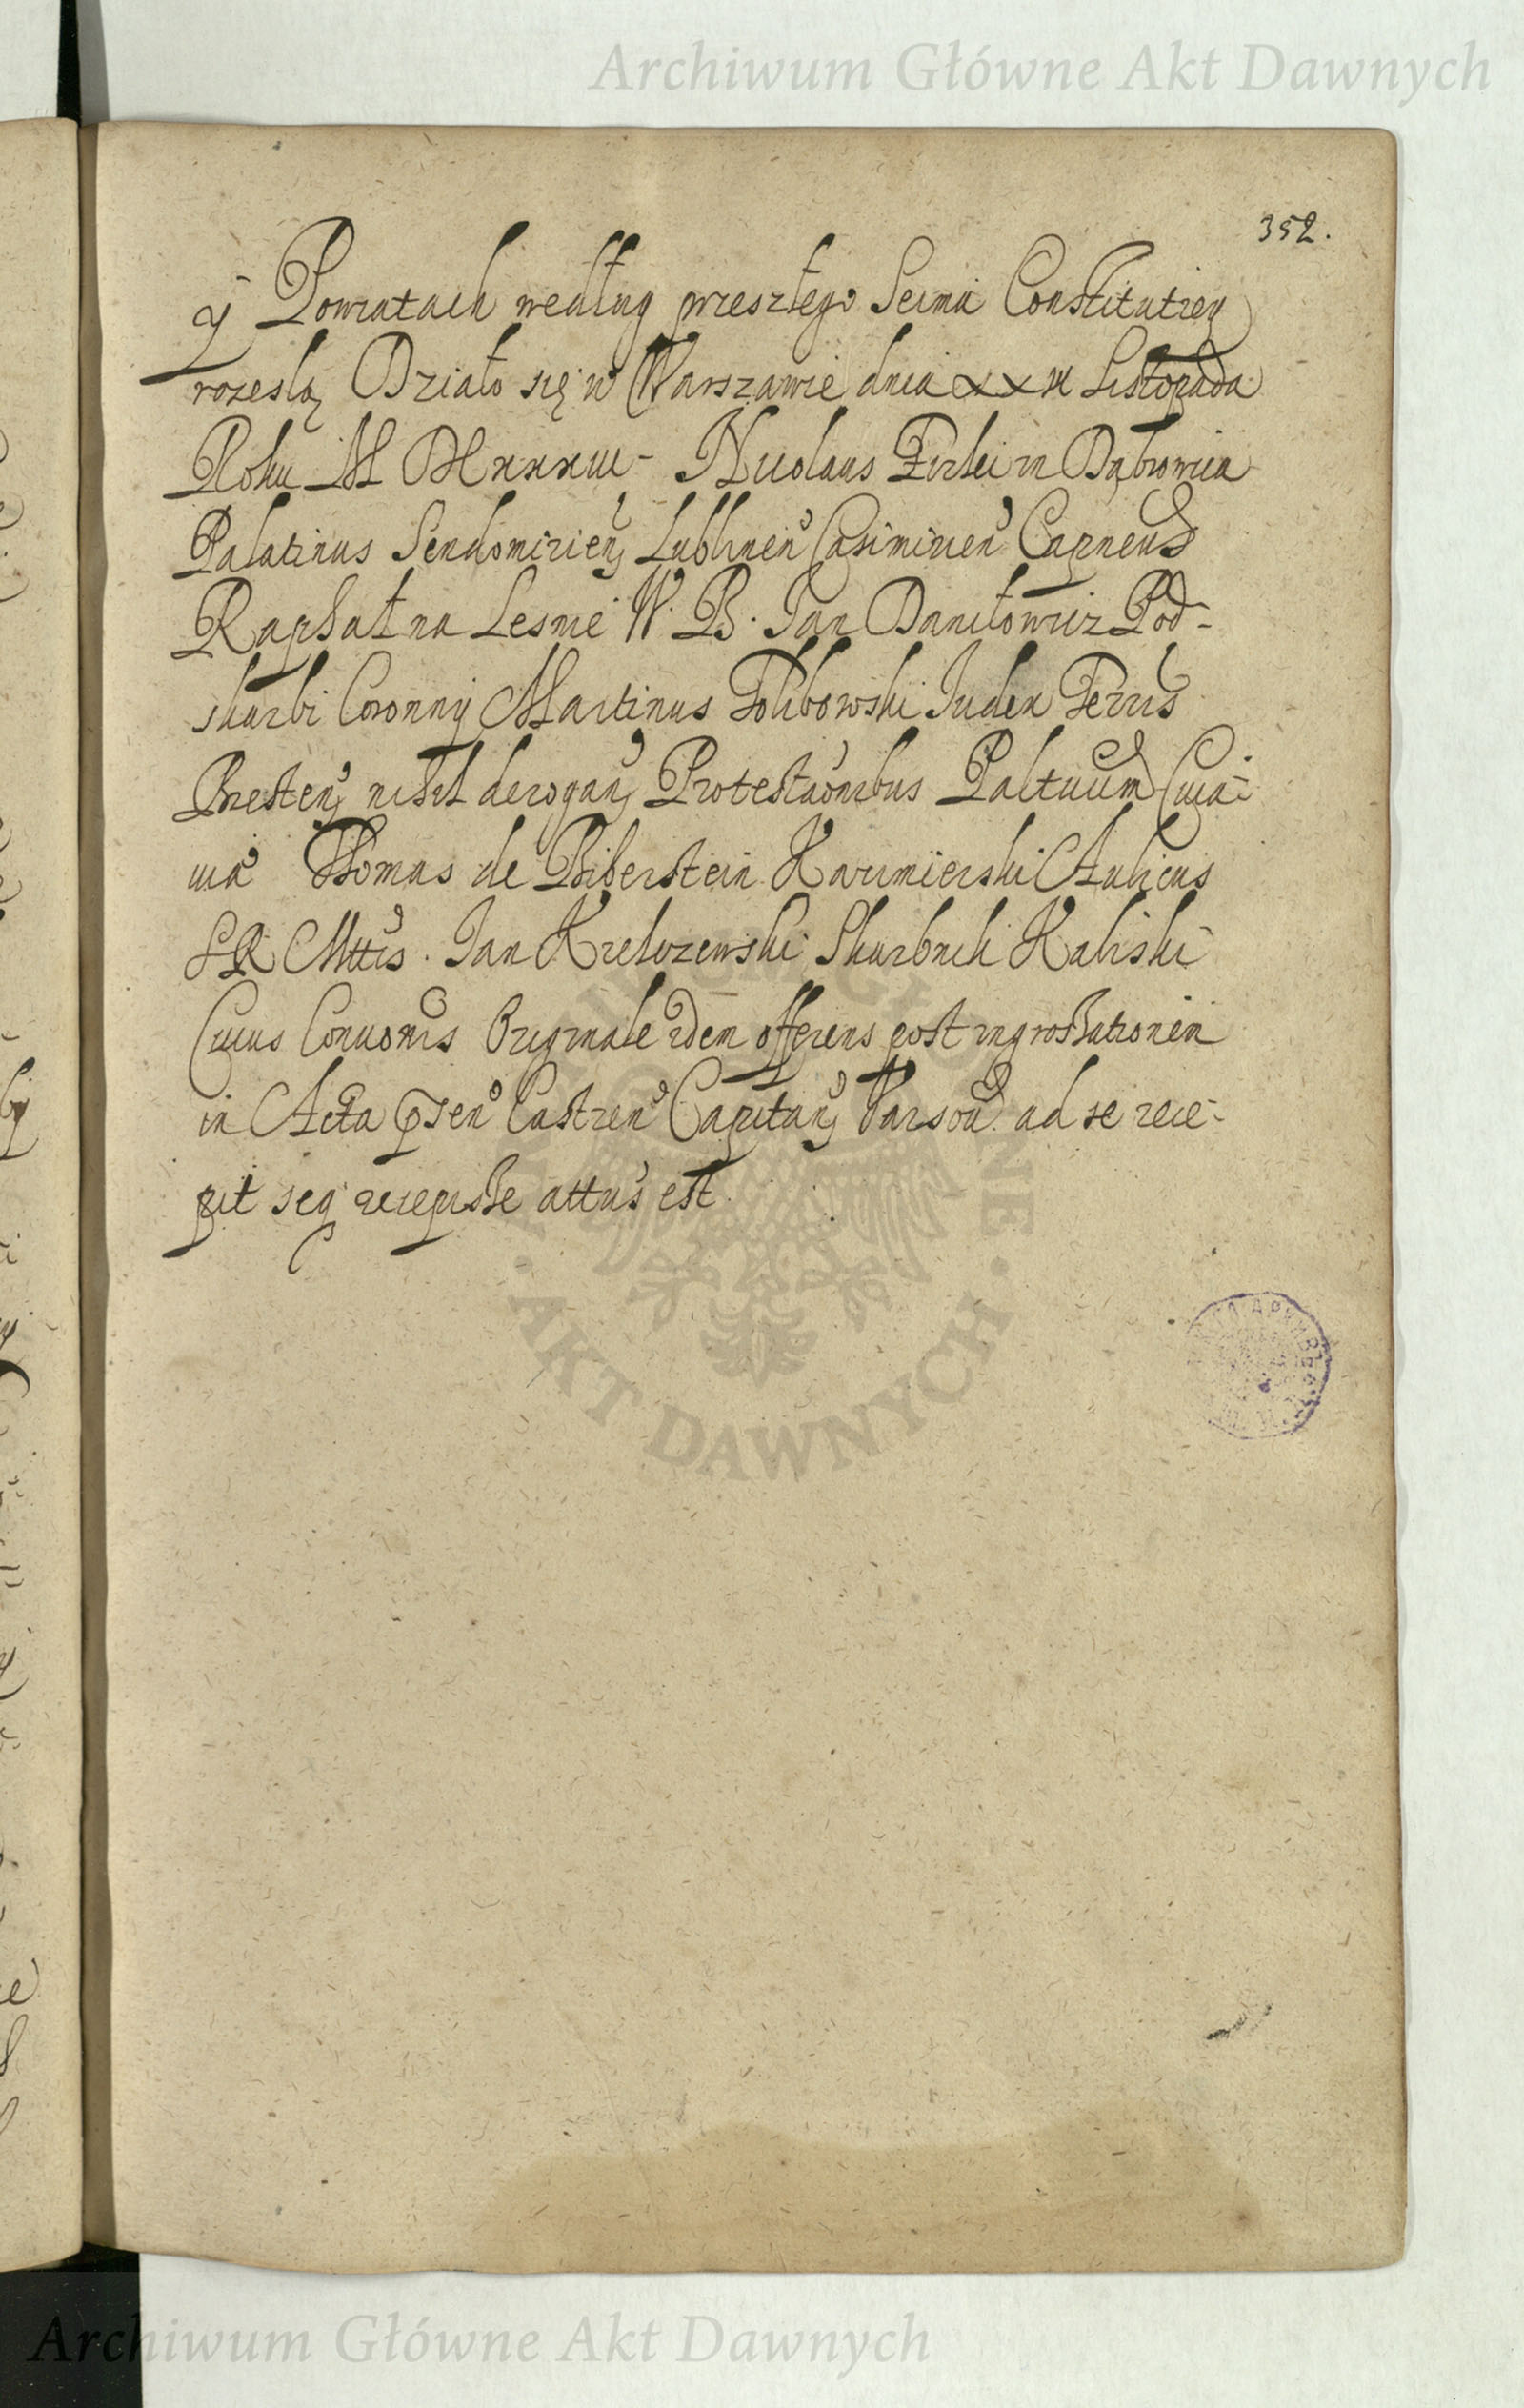 Archiwum Główne Akt Dawnych
352.
ÿ Powiatach według przeszłego Seimu Constitutiey
rozeslą Działo się w Warszawie dnia Listopada
Roku M Nicolaus Firlei in Dąbrowica
Palatinus Sendomirien Lublinen Casimirien
Raphał na Lesnie W. B. Jan Daniłowicz Pod-
skarbi Coronny Martinus Tolibowski Iudex Terris
Bresten nihil derogan Protestaōnibus Paltuum Cuia-
uiā Thomas de Biberstein Kazimierski Aulicus
S R Mttis. Jan Skarbnik Kaliski
Cuius Originale idem offerens post ingrossationem
in Acta pñsen Castren Capitan Varsou ad se rece-
pit seq recepisse attus est.
AKT DAWNYCH
Archiwum Główne Akt Dawnych